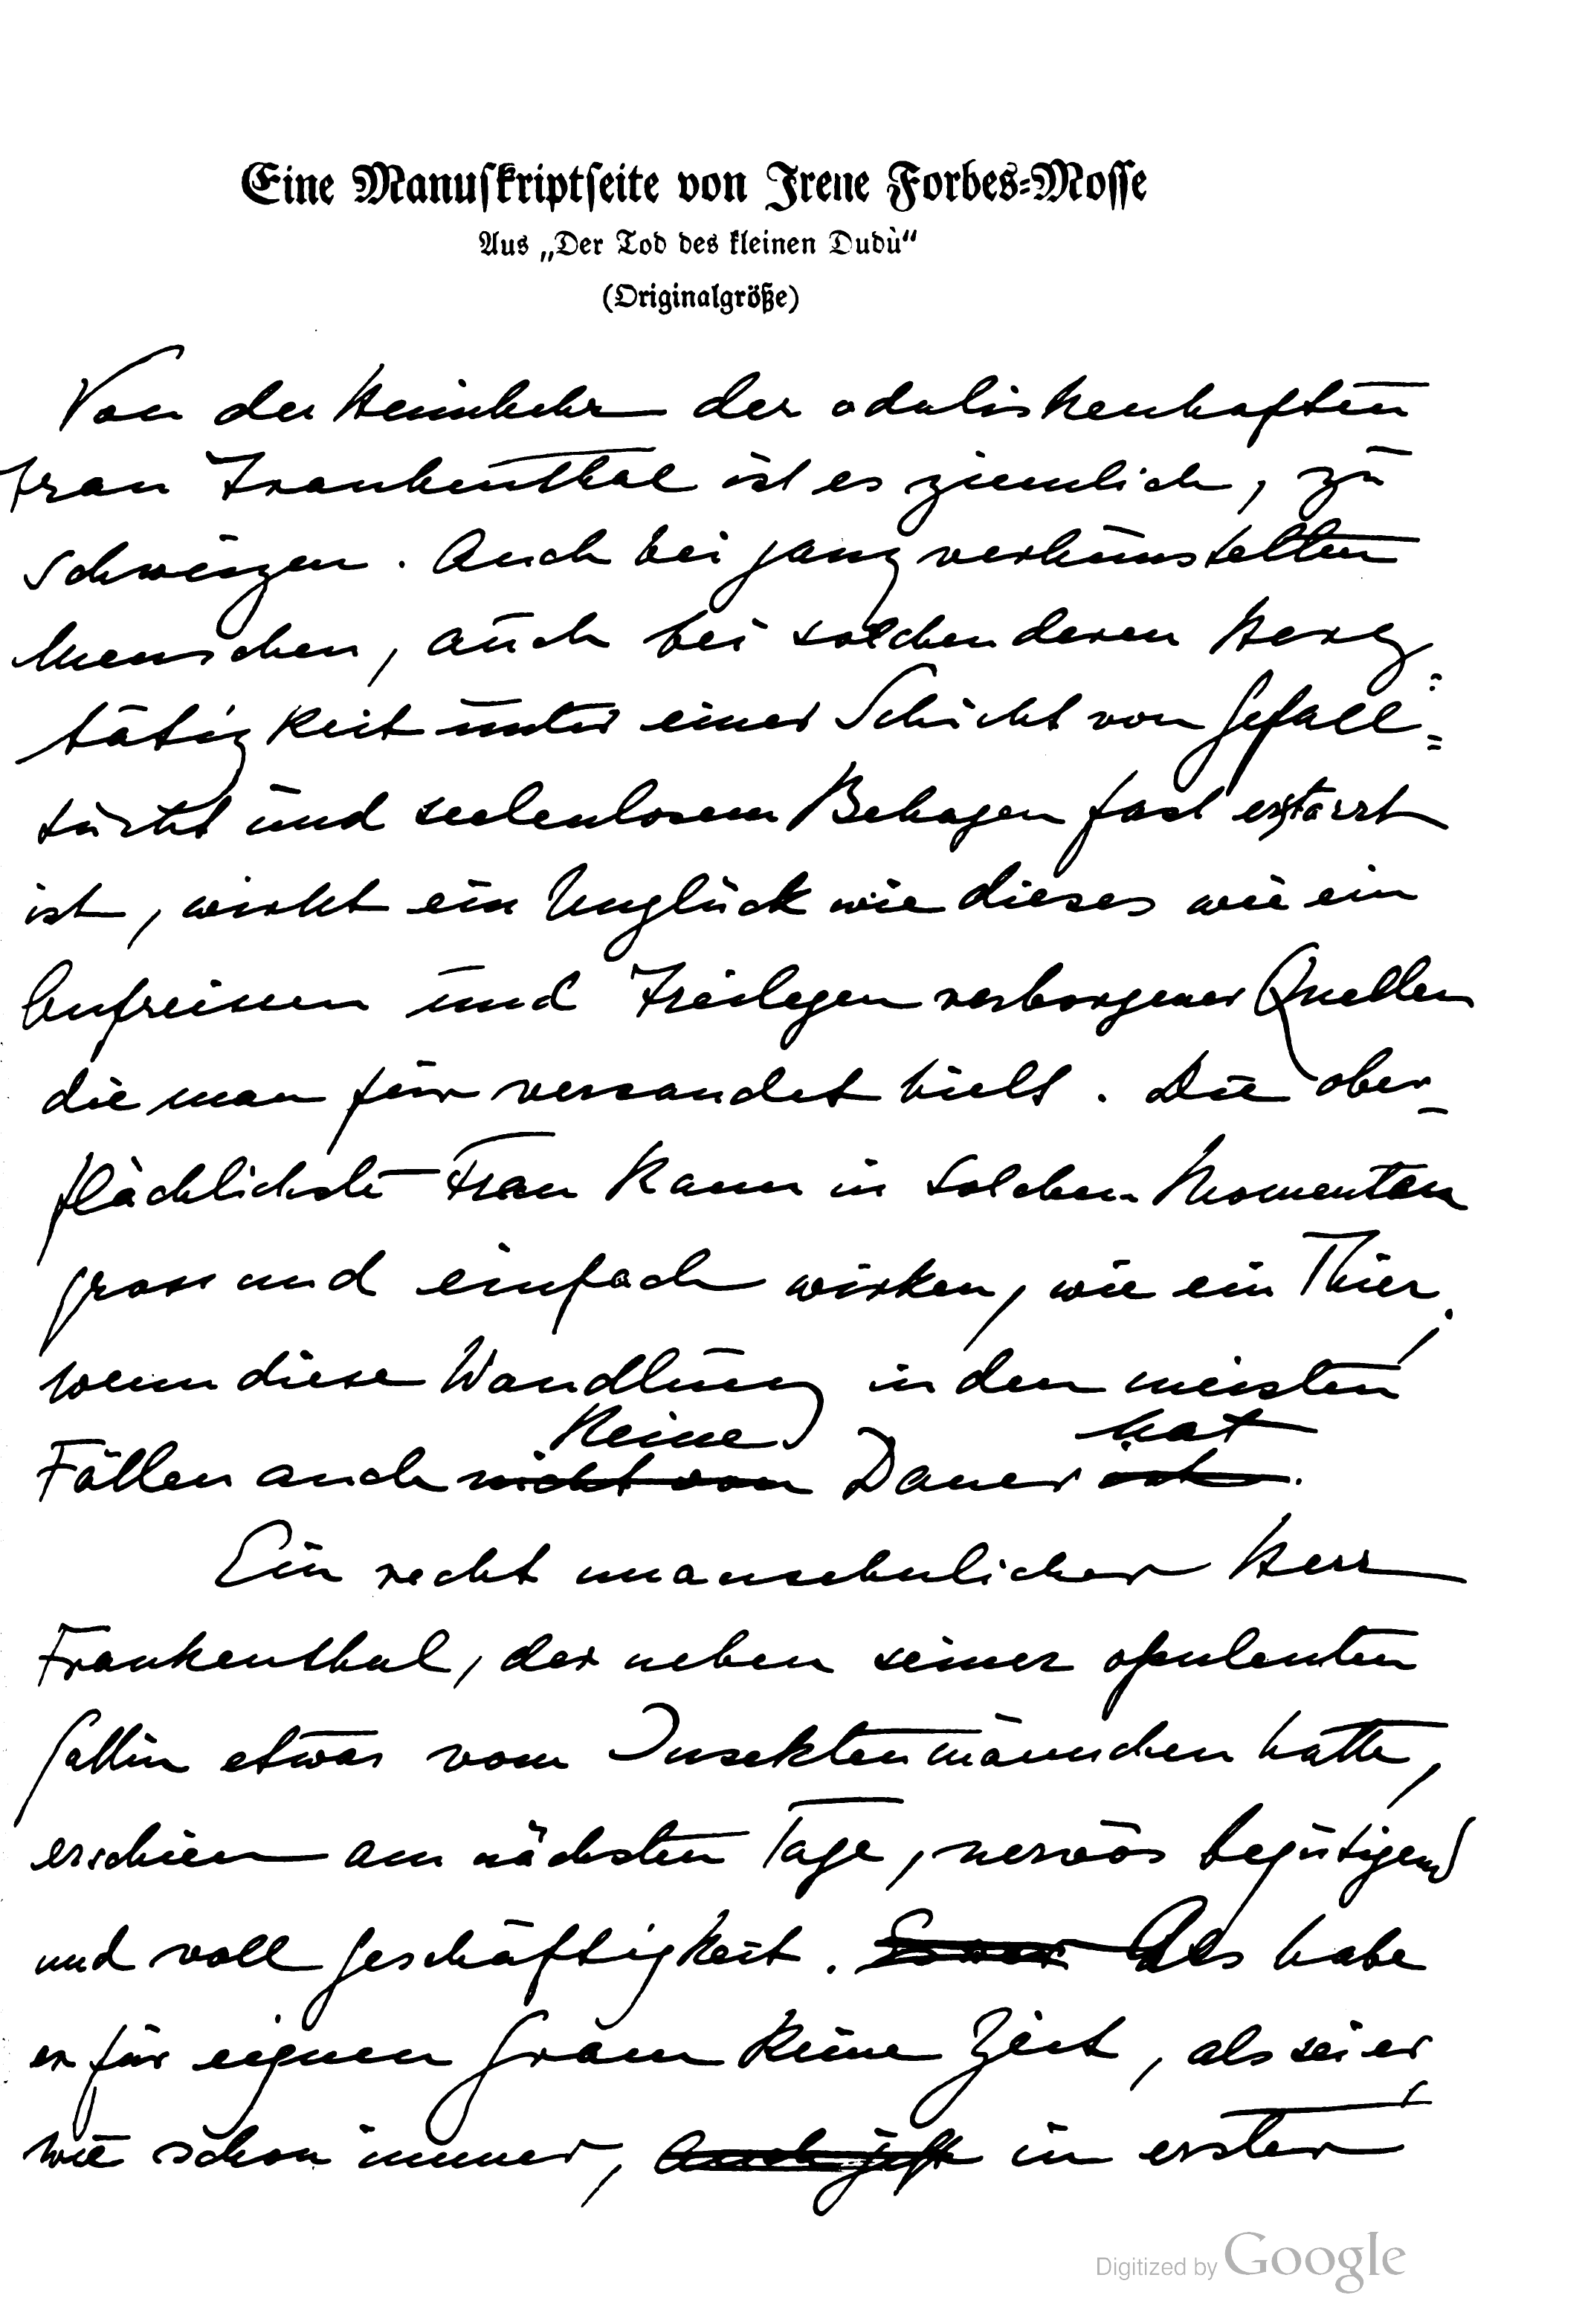 Eine Manuskriptseite von Irene Forbes-Mosse
Aus „Der Tod des kleinen Dudù“
(Originalgröße)
Von der Heimkehr der odaliskenhaften
Frau Frankenthal ist es ziemlich, zu
schweigen. Auch bei ganz verkünstelten
Menschen, auch bei solchen deren Herz=
tätigkeit unter einer Schicht von Gefall=
sucht und seelenlosem Behagen fast erstarrt
ist, wirkt ein Unglück wie dieses wie ein
Aufreissen und Freilegen verborgener Quellen
die man für versandet hielt. Die ober-
flächlichste Frau kann in solchen Momenten
gross und einfach wirken, wie ein Thier,
wenn diese Wandlung in den meisten
keine hat
Fällen auch nicht von Dauer ist.
Ein recht unansehnlicher Herr
Frankenthal, der neben seiner opulenten
Gattin etwas vom Insektenmännchen hatte,
erschien am nächsten Tage, nervös begütigend
und voll Geschäftigkeit. Es war Als habe
er für eignen Gram keine Zeit, als sei er
wie schon immer, auch jetzt in erster
Digitized by Google